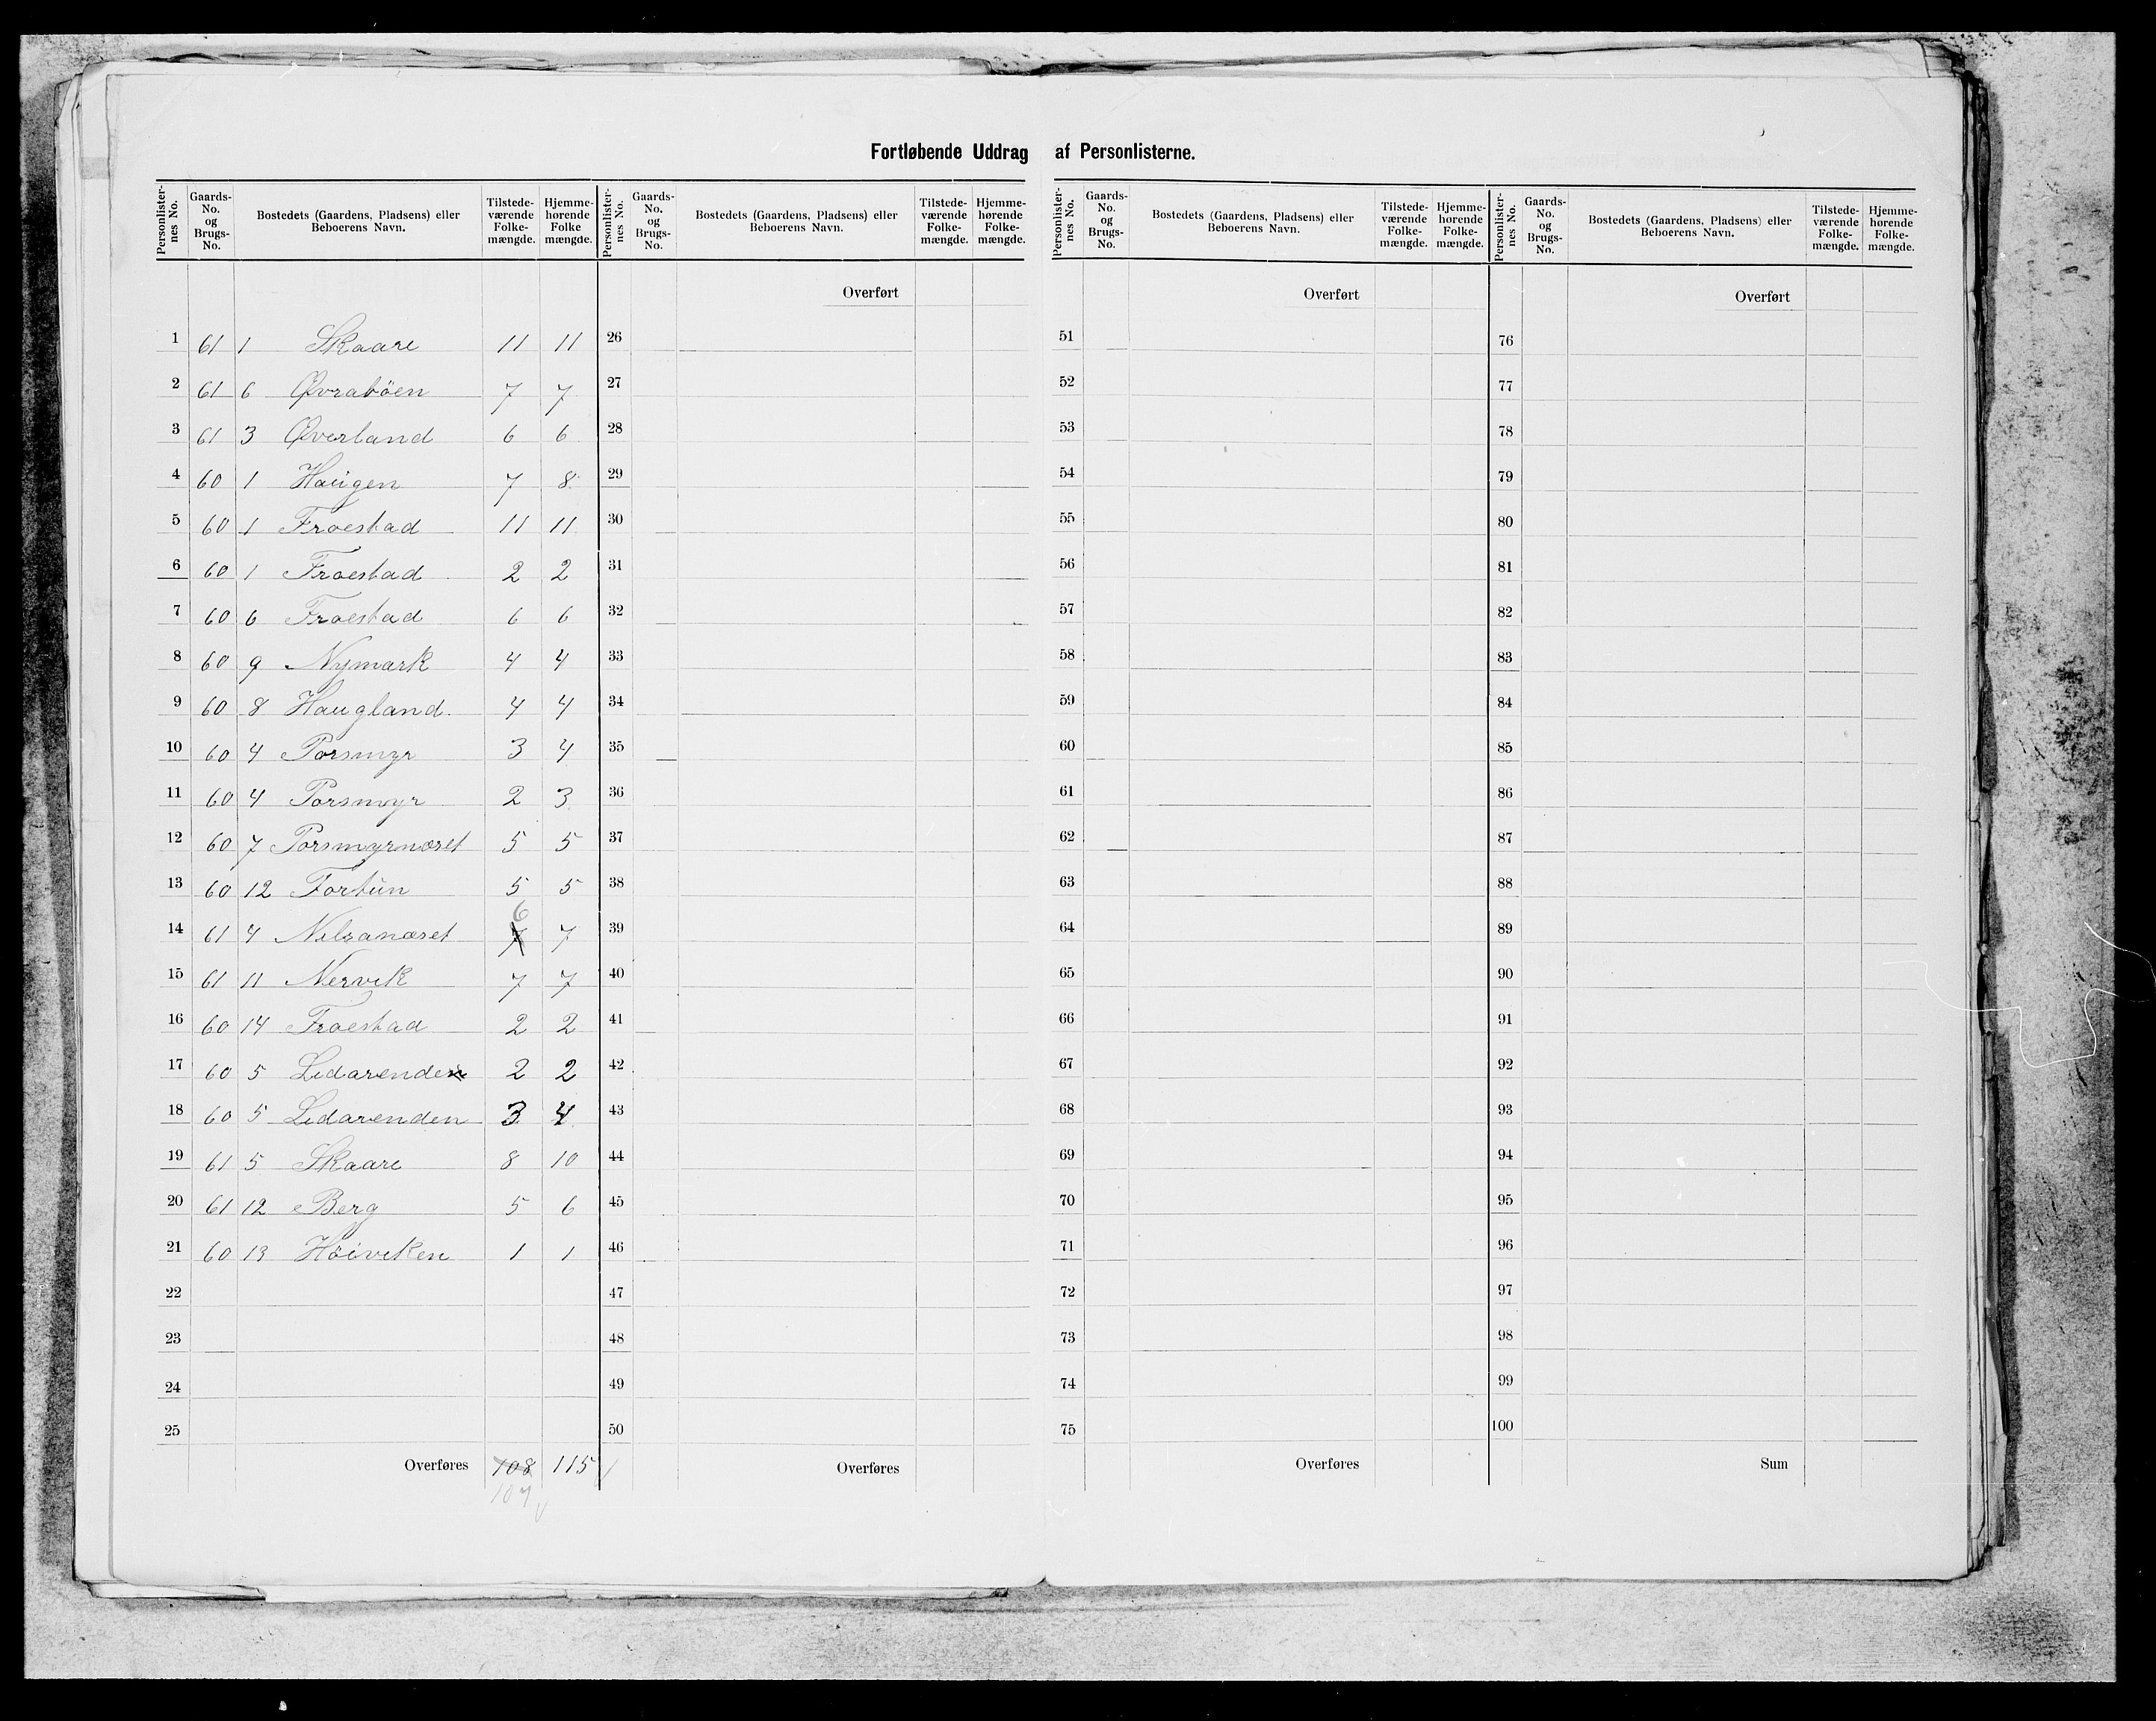 Fortløbende Uddrag af Personlisterne.
Personlister-nes No. | Gaards-No. og Brugs-No. | Bostedets (Gaardens, Pladsens) eller Beboerens Navn. | Tilstede-værende Folke-mængde. | Hjemme-hørende Folke mængde. | Personlister-nes No. | Gaards-No. og Brugs-No. | Bostedets (Gaardens, Pladsens) eller Beboerens Navn. | Tilstede-værende Folke-mængde. | Hjemme-hørende Folke-mængde. | Personlister-nes No. | Gaards-No. og Brugs-No. | Bostedets (Gaardens, Pladsens) eller Beboerens Navn. | Tilstede-værende Folke-mængde. | Hjemme-hørende Folke-mængde. | Personlister-nes No. | Gaards-No. og Brugs-No. | Bostedets (Gaardens, Pladsens) eller Beboerens Navn. | Tilstede-værende Folke-mængde. | Hjemme-hørende Folke-mængde.
Overført Overført Overført
1 61 1 Skaare 11 11 26 51 76
2 61 6 Øvraböen 7 7 27 52 77
3 61 3 Øverland 6 6 28 53 78
4 60 1 Haugen 7 8 29 54 79
5 60 1 Froestad 11 11 30 55 80
6 60 1 Froestad 2 2 31 56 81
7 60 6 Froestad 6 6 32 57 82
8 60 9 Nymark 4 4 33 58 83
9 60 8 Haugland 4 4 34 59 84
10 60 4 Porsmyr 3 4 35 60 85
11 60 4 Porsmyr 2 3 36 61 86
12 60 7 Porsmyrnæset 5 5 37 62 87
13 60 12 Fortun 5 5 38 63 88
6
14 61 4 7 7 39 64 89
15 61 11 Nervik 7 7 40 65 90
16 60 14 Froestad 2 2 41 66 91
17 60 5 Lidarenden 2 2 42 67 92
18 60 5 Lidarenden 3 4 43 68 93
19 61 5 Skaare 8 10 44 69 94
20 61 12 Berg 5 6 45 70 95
21 60 13 Höiviken 1 1 46 71 96
22 47 72 97
23 48 73 98
24 49 74 99
25 50 75 100
Overføres 108 115 Overføres Overføres Sum
107